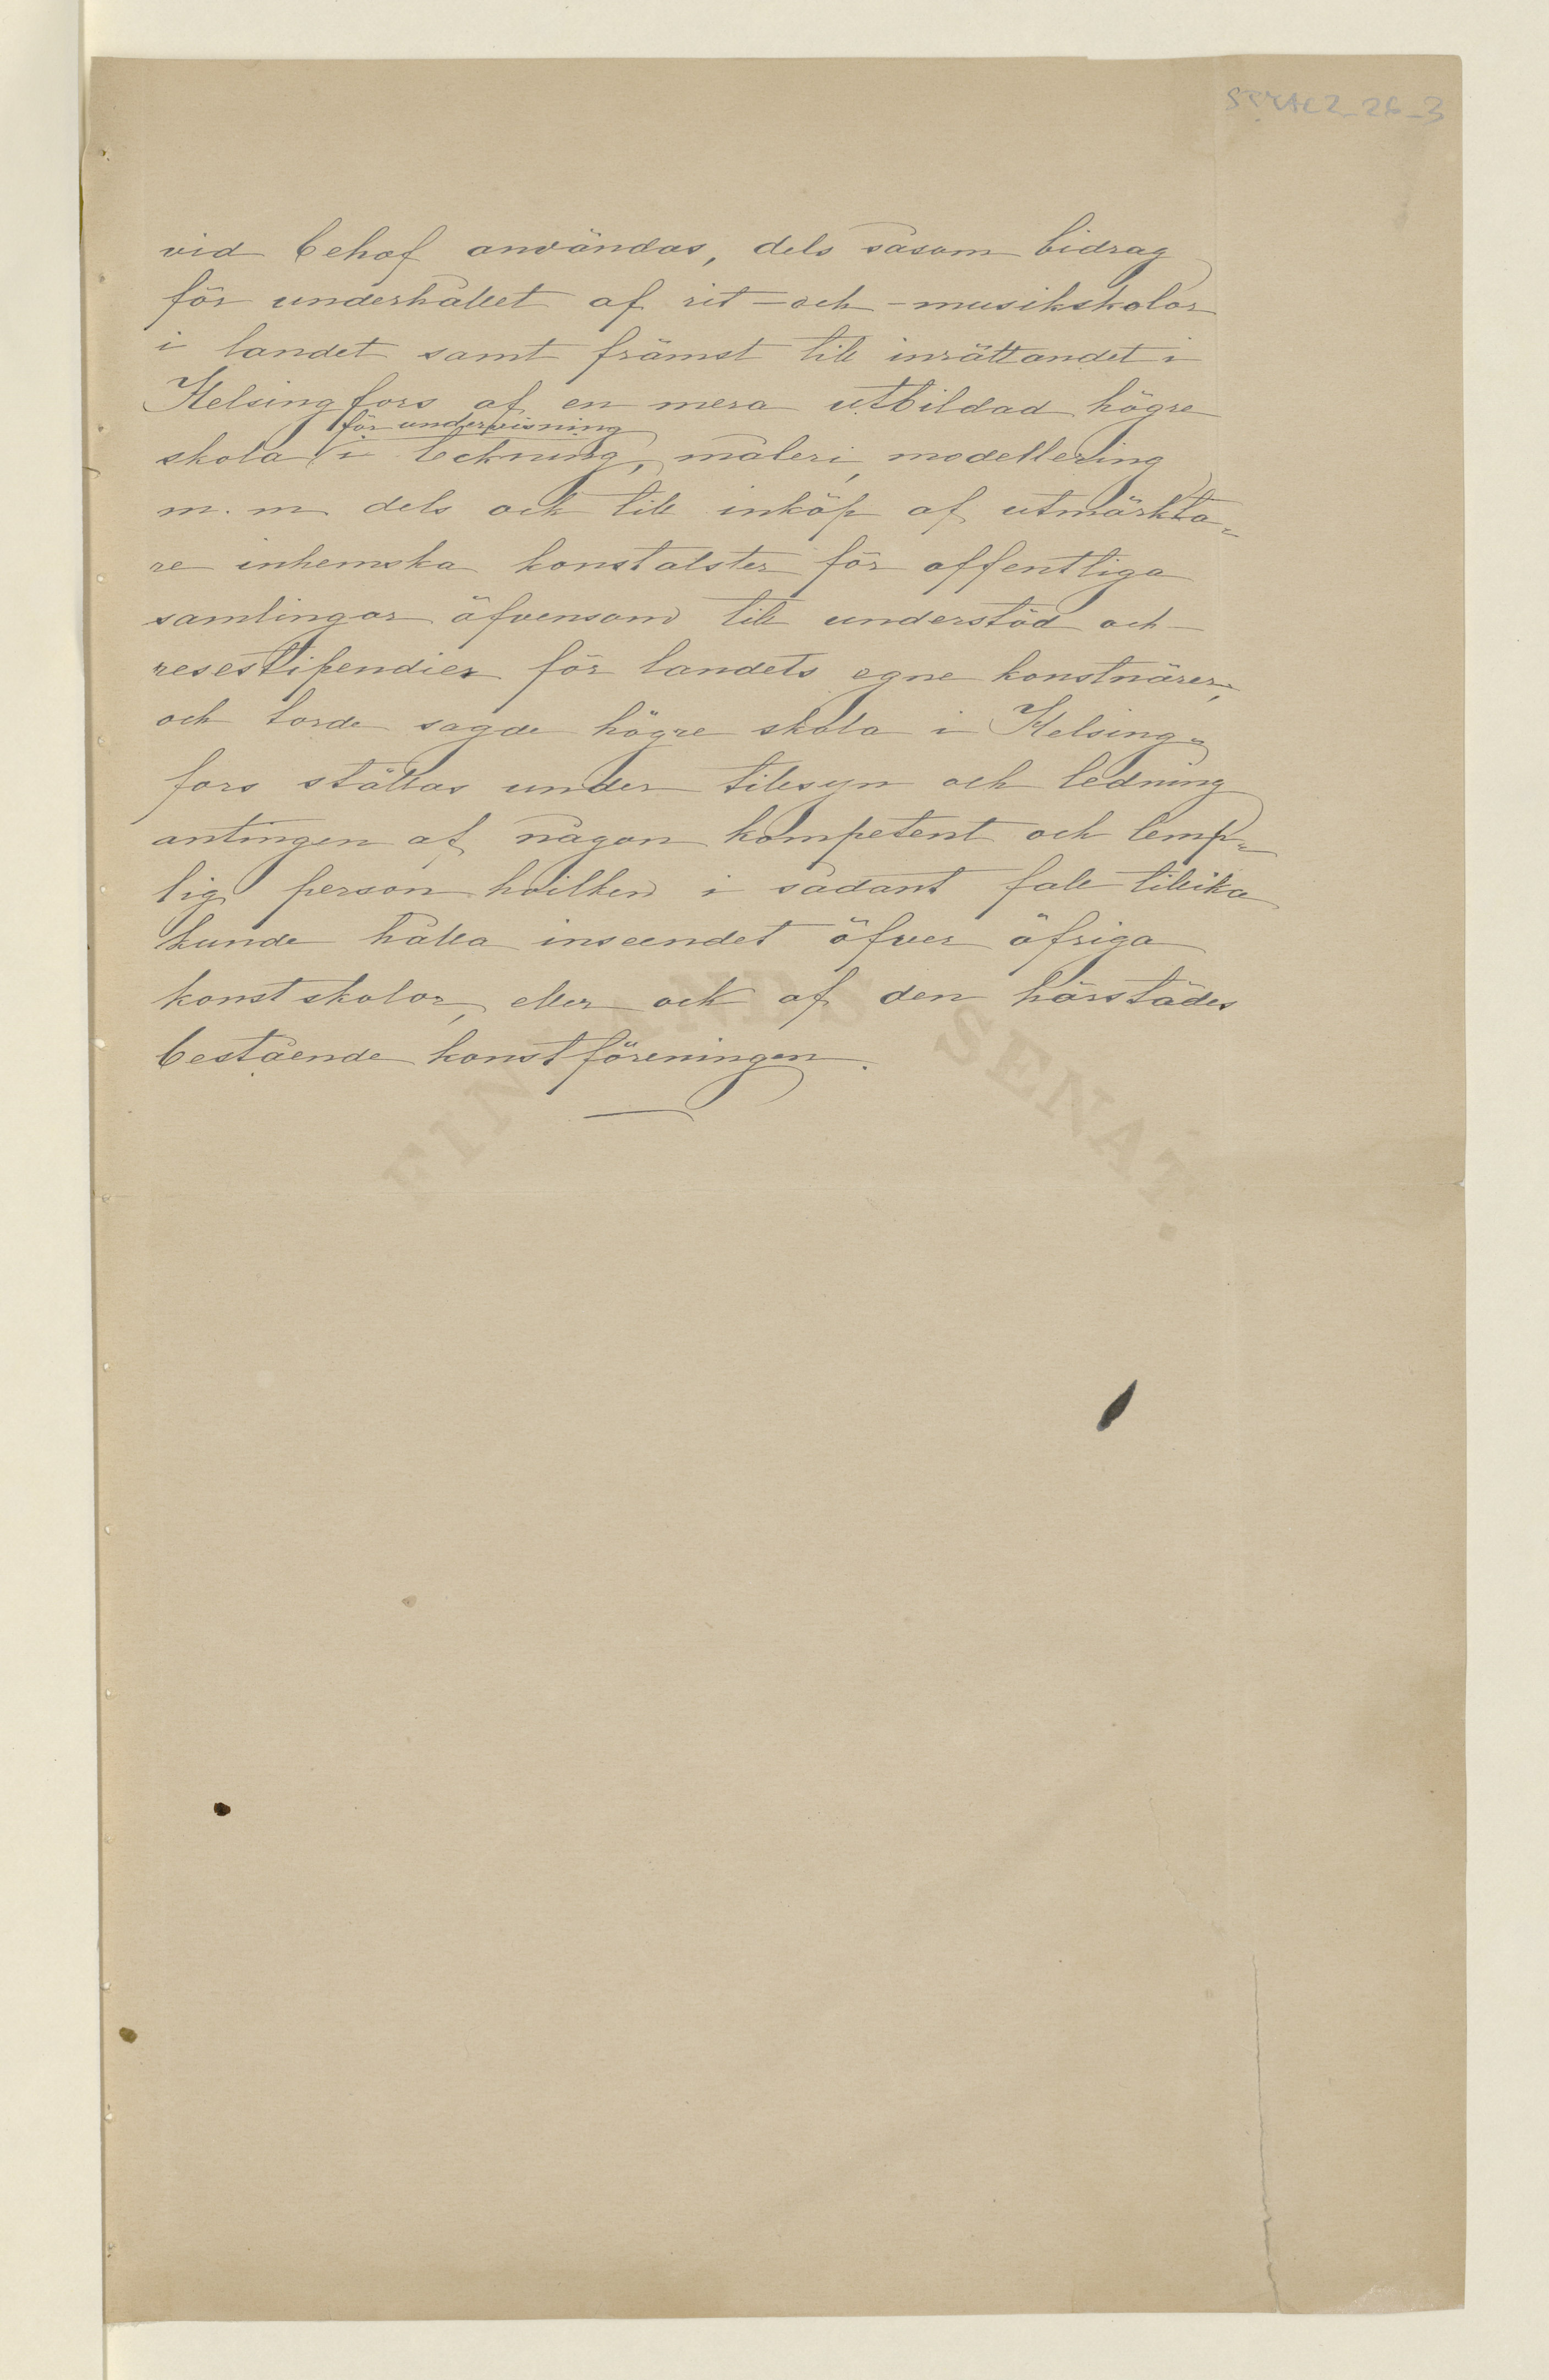 vid behof användas, dels såsom bidrag
för underhållet af rit- och -musikskolor
i landet samt främst till inrättandet i
Helsingfors af en mera utbildad högre
för undervisning
skola i teckning, måleri, modellering
m. m. dels ock till inköp af utmärkta=
re inhemska konstalster för offentliga
samlingar äfvensom till understöd och
resestipendier för landets egne konstnärer,
och torde sagde högre skola i Helsing=
fors ställas under tillsyn och ledning
antingen af någon kompetent och lemp=
lig person hvilken i sådant fall tillika
kunde hålla inseendet öfver öfriga
konstskolor, eller ock af den härstädes
bestående konstföreningen.
FINLANDS SENAT.